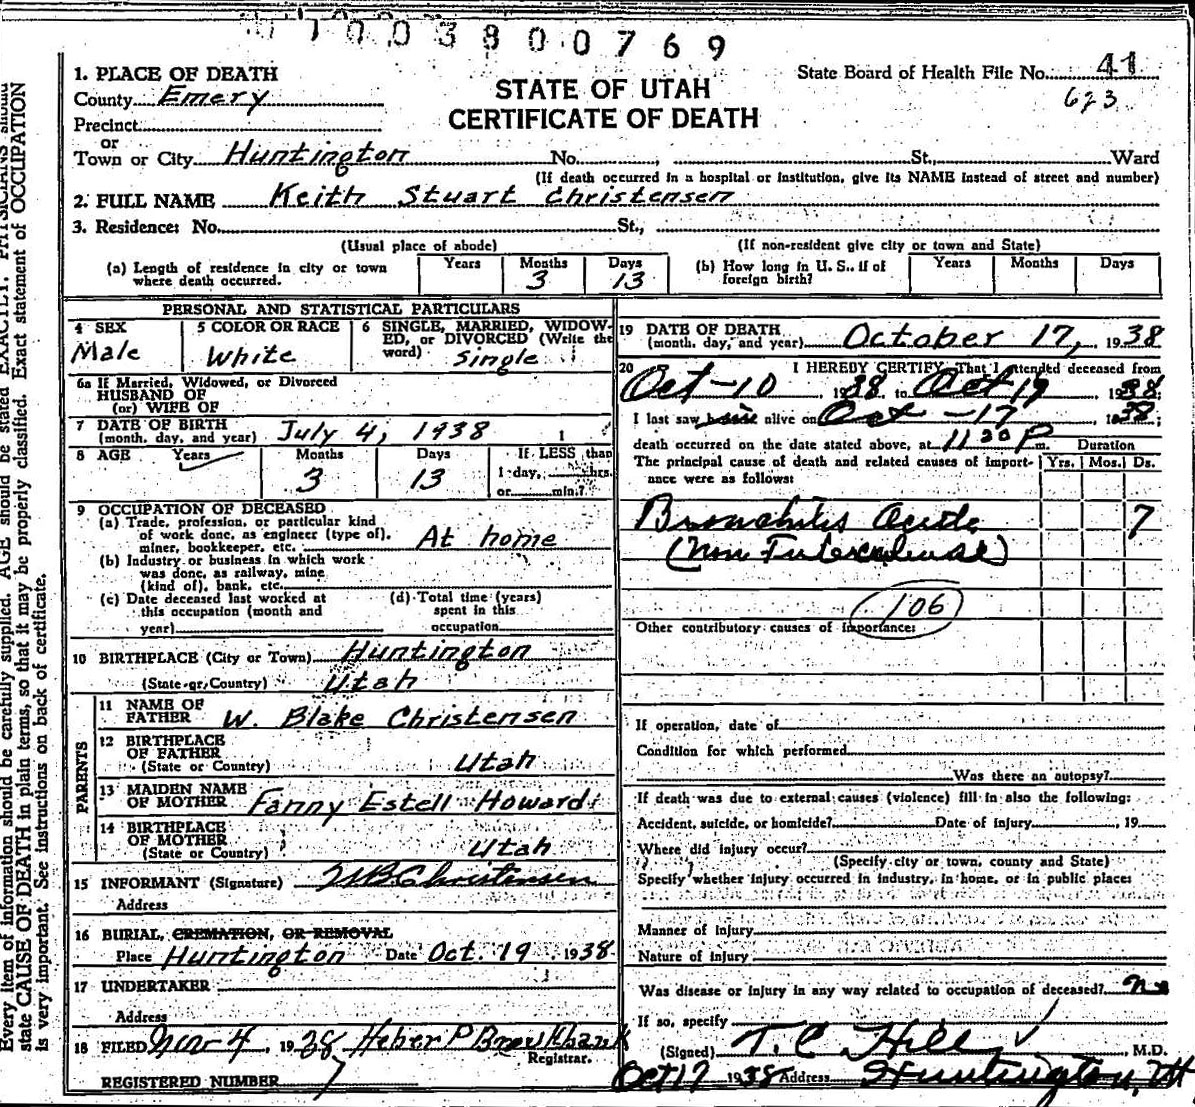 1003800769
STATE OF UTAH
CERTIFICATE OF DEATH
State Board of Health File No. 41
623
1. PLACE OF DEATH
County Emery
Precinct
or
Town or City Huntington No. , St., Ward
(If death occurred in a hospital or institution, give its NAME instead of street and number)
2. FULL NAME Keith Stuart Christensen
3. Residence: No. St.,
(Usual place of abode) (If non-resident give city or town and State)
(a) Length of residence in city or town where death occurred. Years Months 3 Days 13
(b) How long in U. S., if of foreign birth? Years Months Days
PERSONAL AND STATISTICAL PARTICULARS
4 SEX Male
5 COLOR OR RACE White
6 SINGLE, MARRIED, WIDOWED, OR DIVORCED (Write the word) Single
6a If Married, Widowed, or Divorced
HUSBAND OF
(or) WIFE OF
7 DATE OF BIRTH
(month, day, and year) July 4, 1938
8 AGE Years Months 3 Days 13 If LESS than
1 day, hrs.
or min.?
9 OCCUPATION OF DECEASED
(a) Trade, profession, or particular kind
of work done, as engineer (type of),
miner, bookkeeper, etc. At home
(b) Industry or business in which work
was done, as railway, mine
(kind of), bank, etc.
(c) Date deceased last worked at
this occupation (month and
year)
(d) Total time (years)
spent in this
occupation
10 BIRTHPLACE (City or Town) Huntington
(State or Country) Utah
PARENTS
11 NAME OF
FATHER W. Blake Christensen
12 BIRTHPLACE
OF FATHER
(State or Country) Utah
13 MAIDEN NAME
OF MOTHER Fanny Estell Howard
14 BIRTHPLACE
OF MOTHER
(State or Country) Utah
15 INFORMANT (Signature) W B Christensen
Address
16 BURIAL, CREMATION, OR REMOVAL
Place Huntington Date Oct. 19 1938
17 UNDERTAKER
Address
18 FILED Nov 4, 1938 Heber P Brockbank
Registrar.
REGISTERED NUMBER 7
19 DATE OF DEATH
(month, day, and year) October 17, 1938
20 I HEREBY CERTIFY, That I attended deceased from
Oct-10 1938 to Oct 1938;
I last saw alive on Oct-17 1938;
death occurred on the date stated above, at 11 30 P m. Duration
The principal cause of death and related causes of importance were as follows: Yrs. Mos. Ds.
Bronchitis Acute 7
(Non Tuberculuse)
106
Other contributory causes of importance:
If operation, date of
Condition for which performed
Was there an autopsy?
If death was due to external causes (violence) fill in also the following:
Accident, suicide, or homicide? Date of injury , 19
Where did injury occur?
(Specify city or town, county and State)
Specify whether injury occurred in industry, in home, or in public place:
Manner of injury
Nature of injury
Was disease or injury in any way related to occupation of deceased? no
If so, specify
(Signed) T. C Hill, M.D.
Oct 17 1938 Address Huntington, Ut
Every item of information should be carefully supplied. AGE should be stated EXACTLY. PHYSICIANS should
state CAUSE OF DEATH in plain terms, so that it may be properly classified. Exact statement of OCCUPATION
is very important. See instructions on back of certificate.